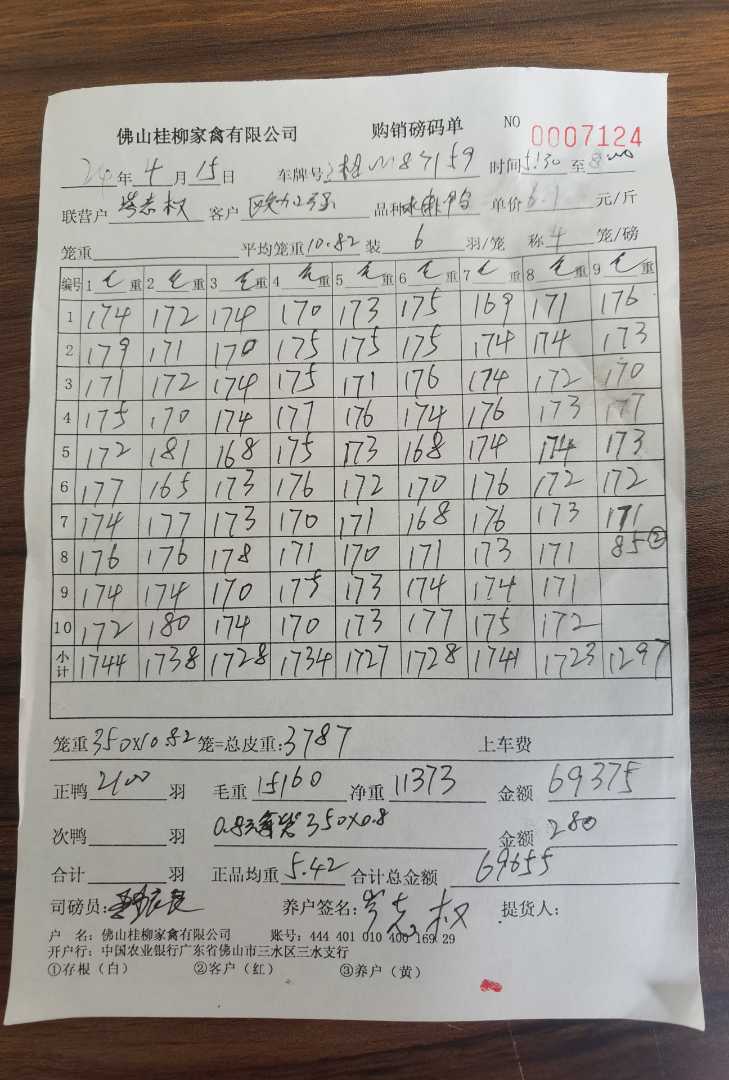 佛山桂柳家禽有限公司 购销磅码单 NO 0007124
24年4月15日 车牌号:桂M87159 时间5:30至8:00
联营户 岑志权 客户 欧力强 品种 单价6.1元/斤
笼重 平均笼重10.82装6羽/笼 称4笼/磅
编号 1毛重 2毛重 3毛重 4毛重 5毛重 6毛重 7毛重 8毛重 9毛重
1 174 172 174 170 173 175 169 171 176
2 179 171 170 175 175 175 174 174 173
3 171 172 174 175 171 176 174 172 170
4 175 170 174 177 176 174 176 173 177
5 172 181 168 175 173 168 174 174 173
6 177 165 173 176 172 170 176 172 172
7 174 177 173 170 171 168 176 173 171
8 176 176 178 171 170 171 173 171 85②
9 174 174 170 175 173 174 174 171
10 172 180 174 170 173 177 175 172
小计 1744 1738 1728 1734 1727 1728 1741 1723 1297
笼重350X10.82笼=总皮重:3787 上车费
正鸭2100羽 毛重15160 净重11373 金额69375
次鸭 羽 0.8 350X0.8 金额280
合计 羽 正品均重5.42 合计总金额69655
司磅员: 养户签名:岑志权 提货人:
户 名:佛山桂柳家禽有限公司 账号:444 401 010 400 169 29
开户行:中国农业银行广东省佛山市三水区三水支行
①存根(白) ②客户(红) ③养户(黄)